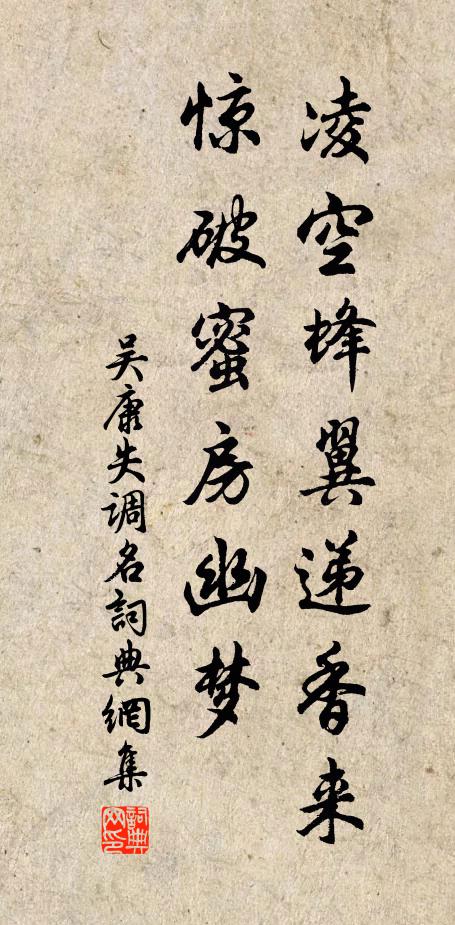 凌空蜂翼递香来
惊破蜜房幽梦
吴康失调名詞典網集
詞典网印